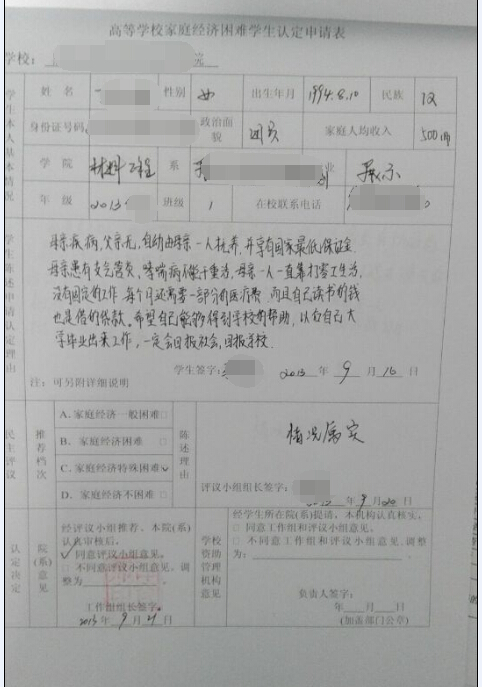 高等学校家庭经济困难学生认定申请表
学校：
学生本人基本情况
姓名 性别 女 出生年月 1994.8.10 民族 汉
身份证号码 政治面貌 团员 家庭人均收入 500
学院 材料工程 系 业 展示
年级 2013 班级 1 在校联系电话
学生陈述申请认定理由
母亲疾病,父亲无,自幼由母亲一人抚养,并享有国家最低保证金
母亲患有支气管炎,哮喘病不能干重活,母亲一人一直靠打零工生活,
没有固定的工作,每个月还需要一部分的医疗费,而且自己读书的钱
也是借的贷款.希望自己能够得到学校的帮助,以后自己大
学毕业出来工作,一定会回报社会,回报学校.
学生签字: 2013年9月16日
注：可另附详细说明
民主评议 推荐档次
A.家庭经济一般困难□
B. 家庭经济困难 □
C.家庭经济特殊困难✓
D. 家庭经济不困难 □
陈述理由
情况属实
评议小组组长签字:
年9月20日
认定决定
院(系)意见
经评议小组推荐、本院(系)
认真审核后,
✓同意评议小组意见。
□ 不同意评议小组意见。调
整为 。
工作组组长签字:
2013年9月21日
学校资助管理机构意见
经学生所在院(系)提请,本机构认真核实,
□ 同意工作组和评议小组意见。
□ 不同意工作组和评议小组意见。调整
为: 。
负责人签字:
年 月 日
(加盖部门公章)